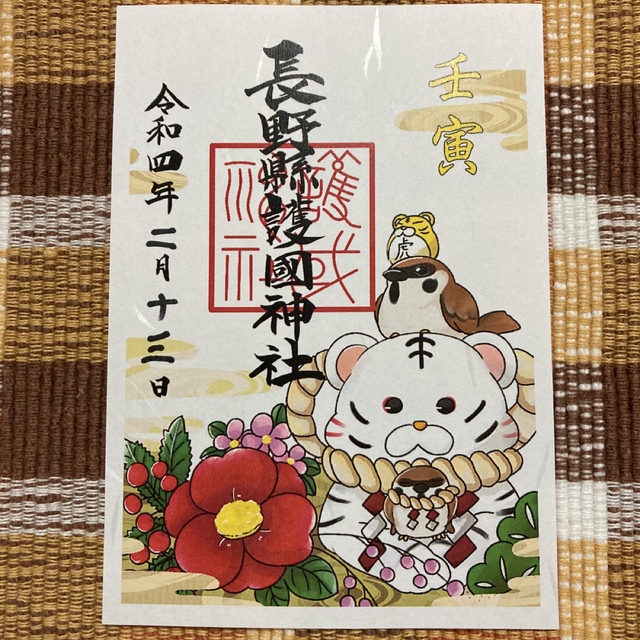 壬寅
虎
長野縣護國神社
護或
神社
令和四年二月十三日